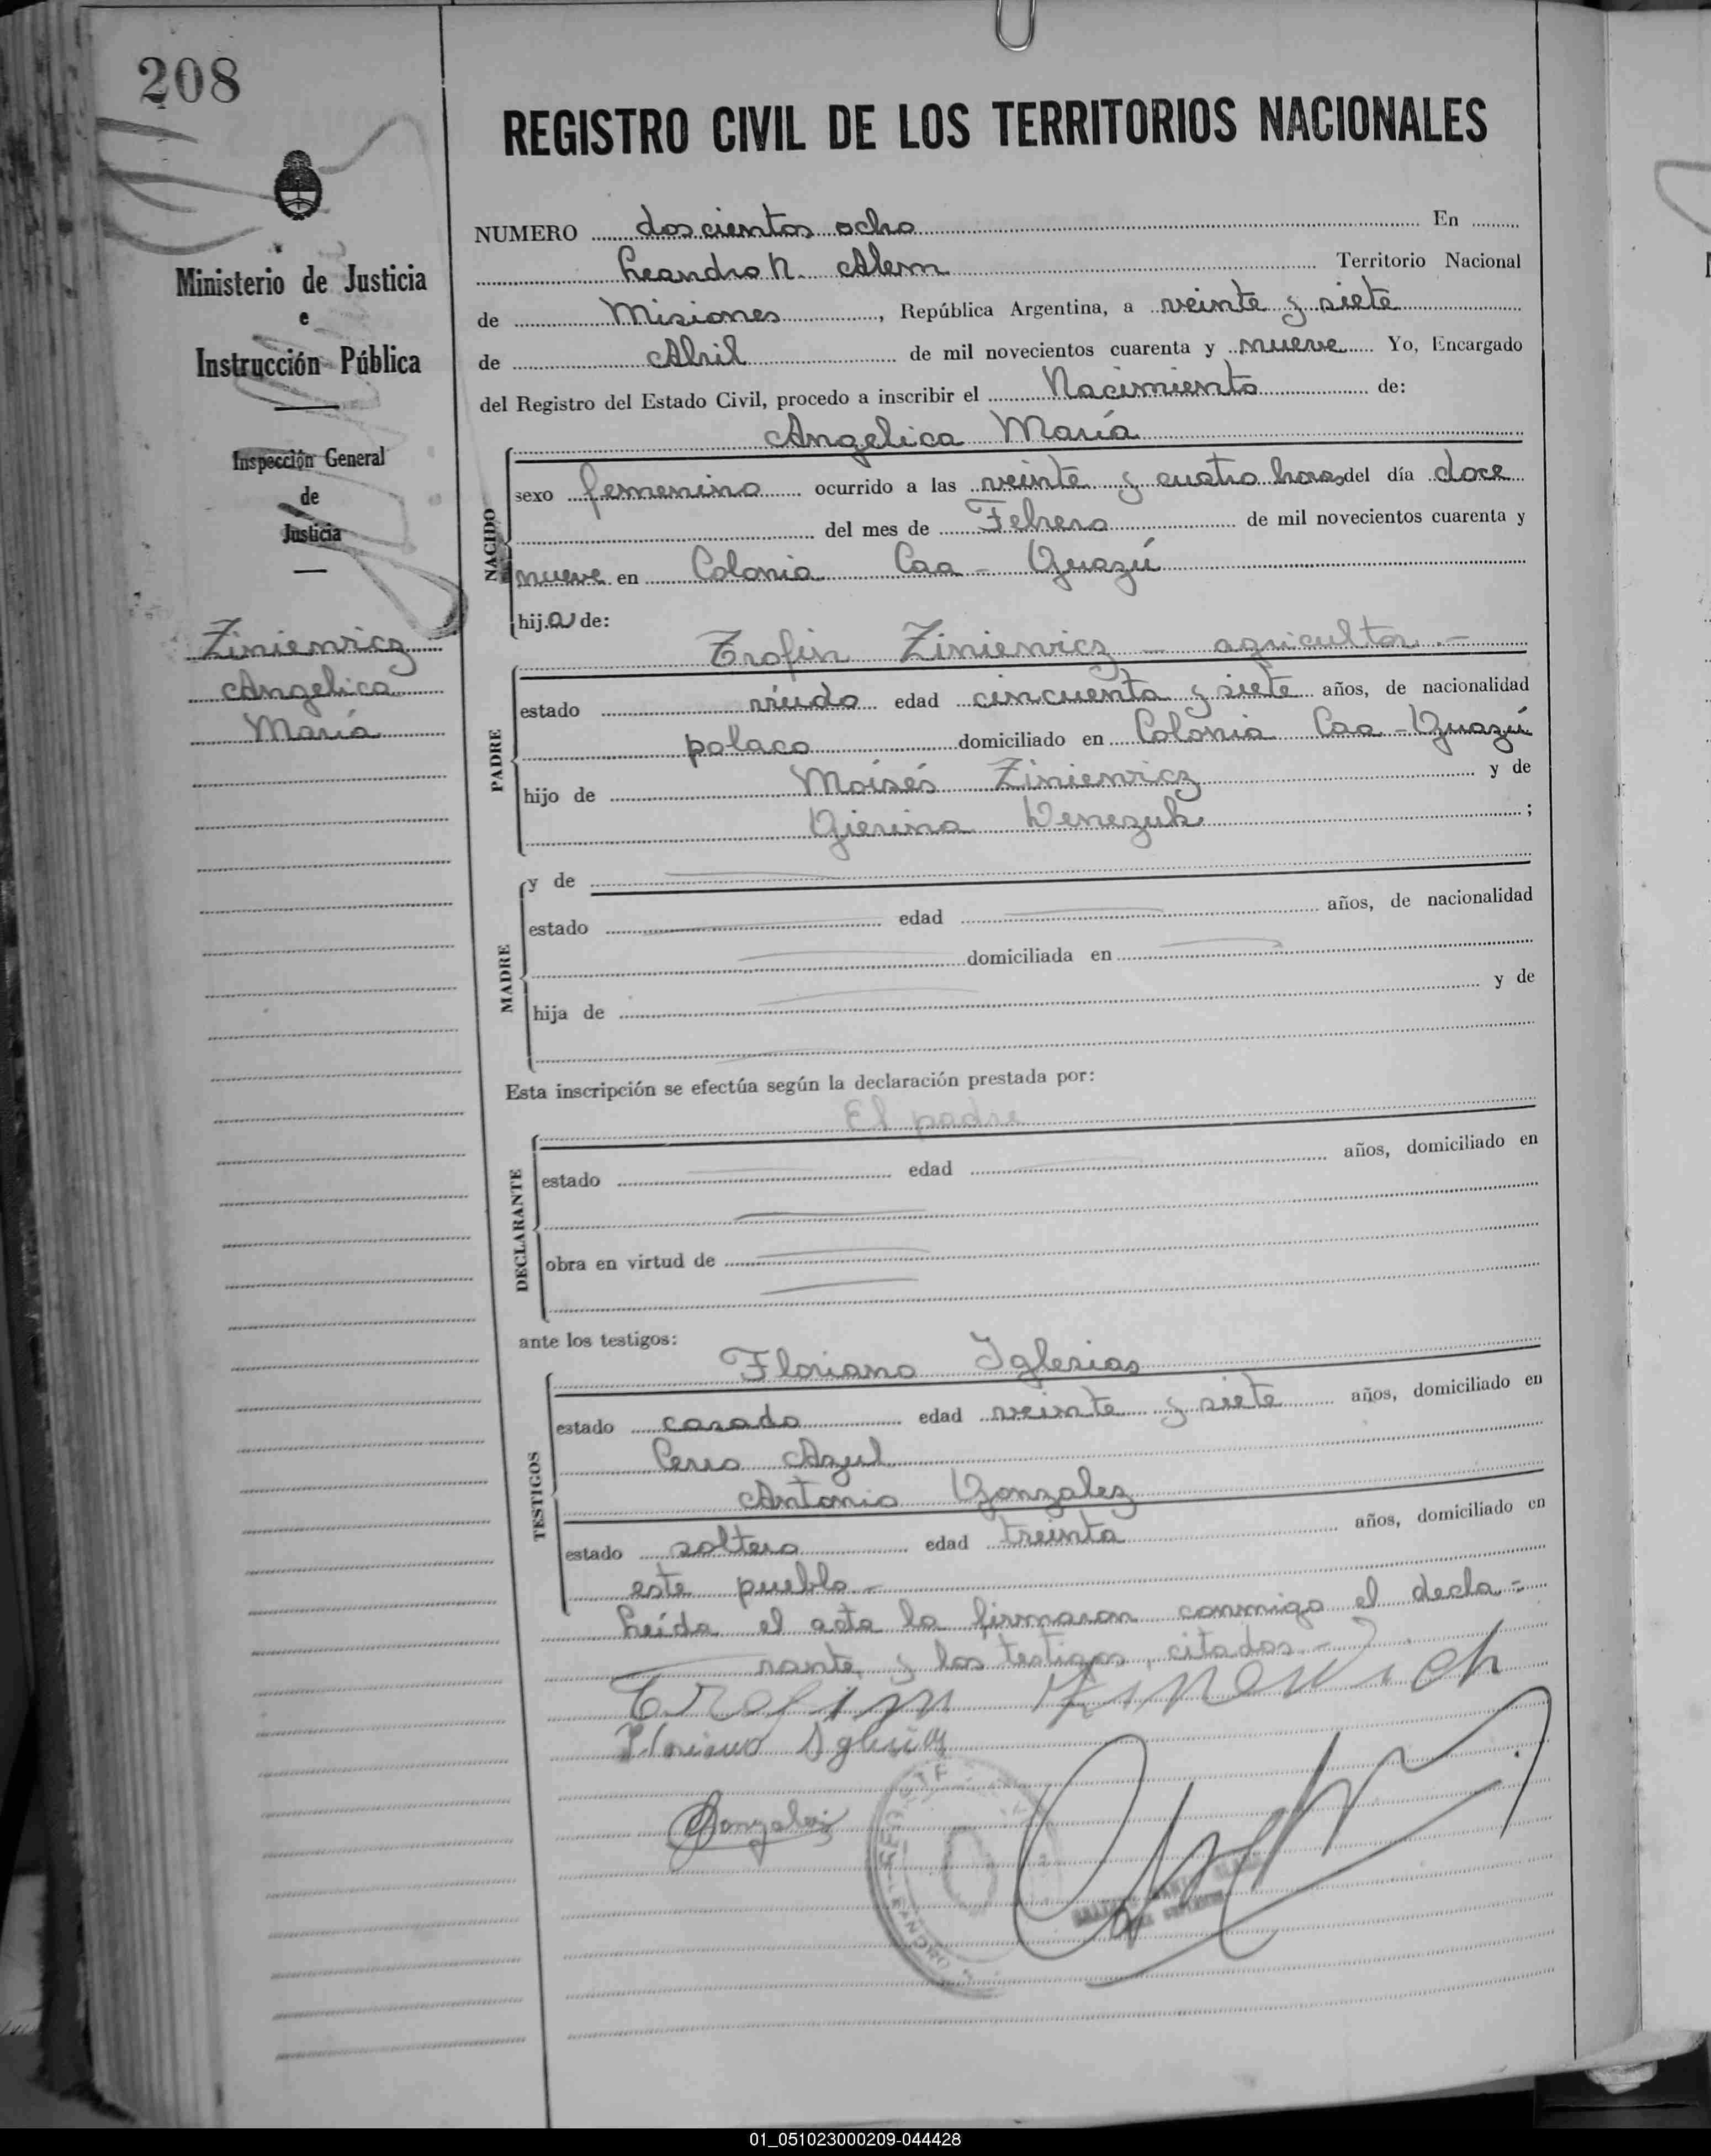 208
REGISTRO CIVIL DE LOS TERRITORIOS NACIONALES
Ministerio de Justicia
e
Instrucción Pública
Inspección General
de
Justicia
Ziniewicz
Angelica
María
NUMERO doscientos ocho En
Leandro N. Alem Territorio Nacional
de Misiones, República Argentina, a veinte y siete
de Abril de mil novecientos cuarenta y nueve Yo, Encargado
del Registro del Estado Civil, procedo a inscribir el Nacimiento de:
Angelica María
NACIDO
sexo femenino ocurrido a las veinte y cuatro horas del día doce
del mes de Febrero de mil novecientos cuarenta y
nueve en Colonia Caa - Guazú
hija de:
Trofin Ziniewicz - agricultor.-
PADRE
estado viudo edad cincuenta y siete años, de nacionalidad
polaco domiciliado en Colonia Caa - Guazú
hijo de Moisés Ziniewicz y de
Gierina Wenezuk ;
MADRE
y de
estado edad años, de nacionalidad
domiciliada en
hija de y de
Esta inscripción se efectúa según la declaración prestada por:
El padre
DECLARANTE
estado edad años, domiciliado en
obra en virtud de
ante los testigos:
Floriano Iglesias
TESTIGOS
estado casado edad veinte y siete años, domiciliado en
Cerro Azul
Antonio Gonzalez
estado soltero edad treinta años, domiciliado en
este pueblo -
Leída el acta la firmaron conmigo el decla-
rante y los testigos, citados.-
Trofim Zinewich
Floriano Iglesias
Gonzalez
01_051023000209-044428